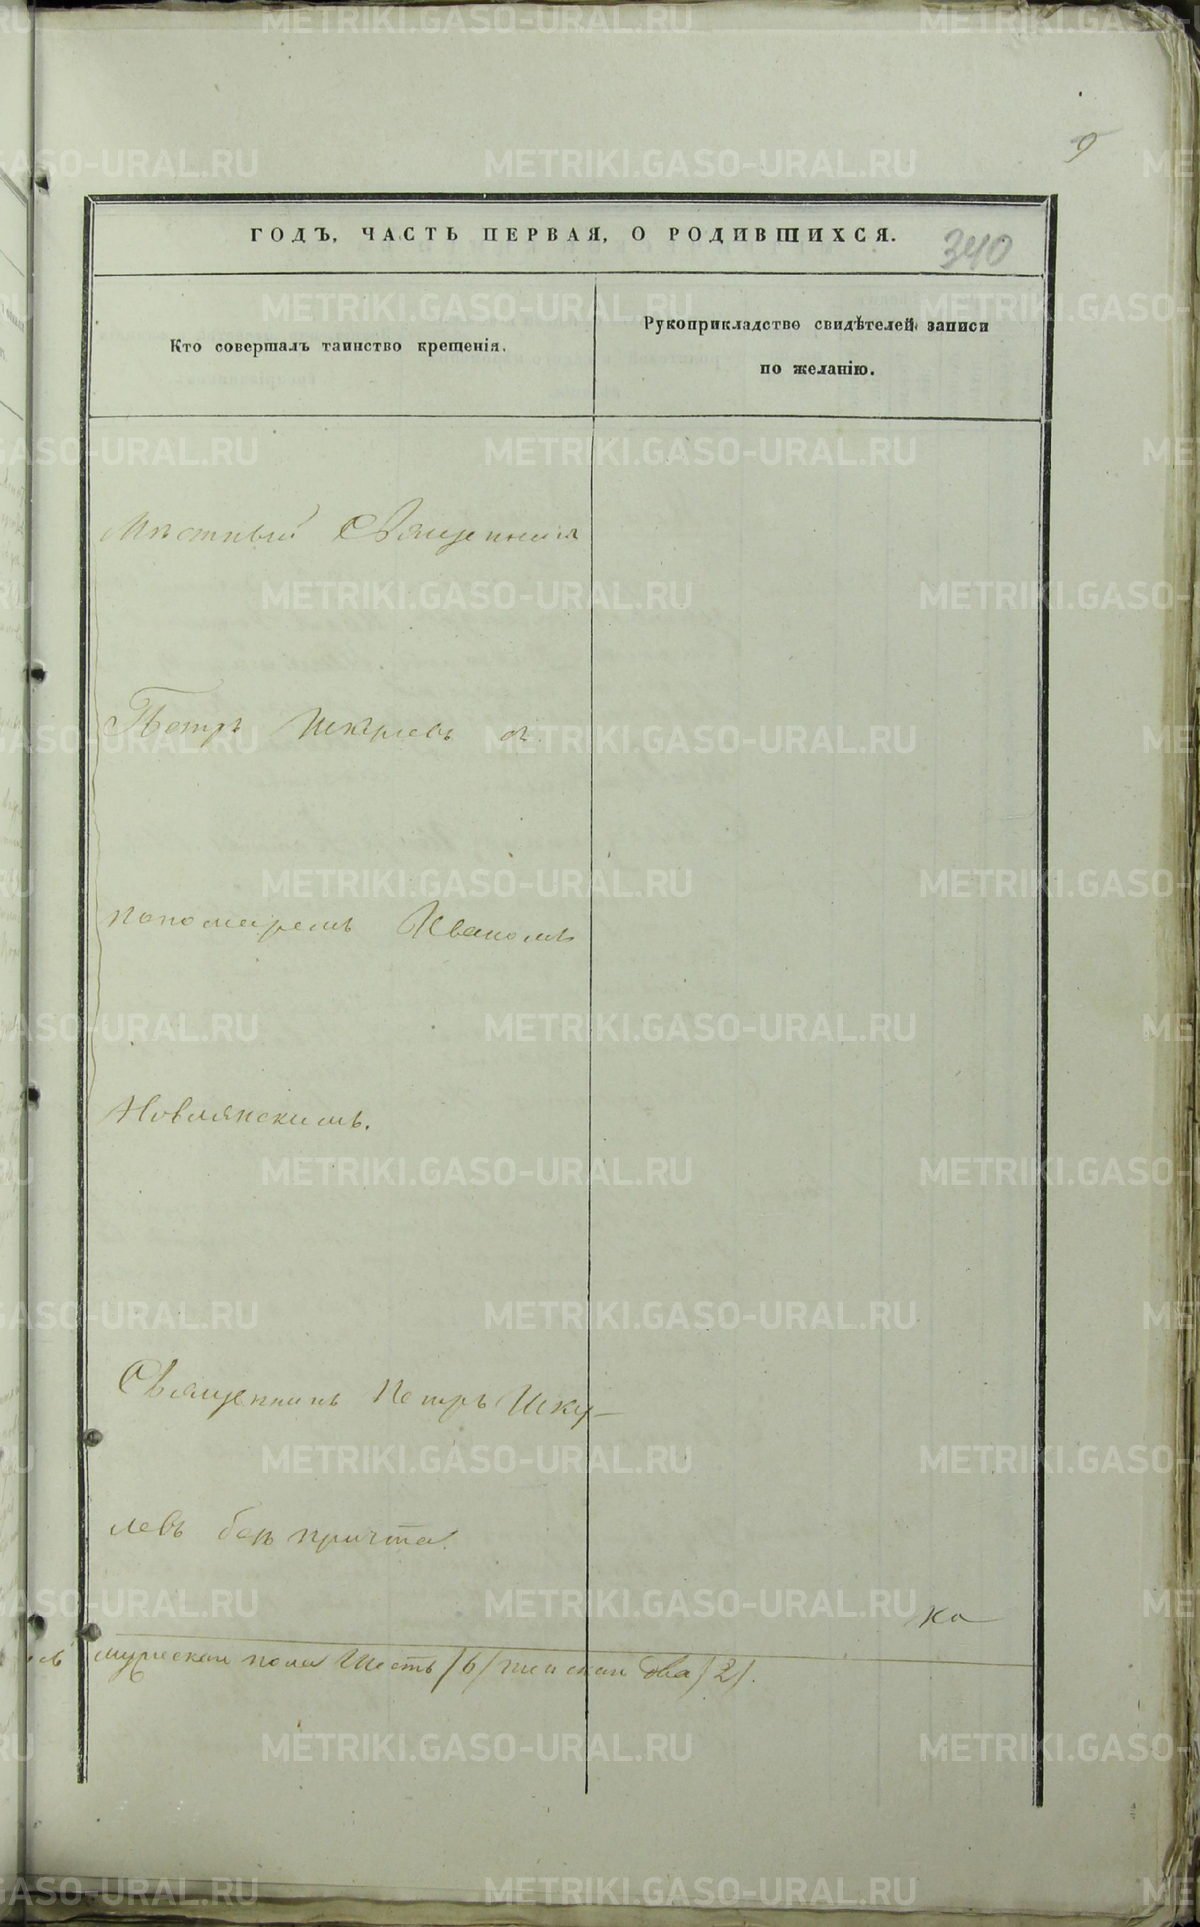 9
ГОДЪ, ЧАСТЬ ПЕРВАЯ, О РОДИВШИХСЯ.
340
Кто совершалъ таинство крещенія.
Рукоприкладство свидѣтелей записи
по желанію.
Мѣстный Священникъ
Петръ Шкулевъ съ
пономаремъ Иваномъ
Новлянскимъ.
Священникъ Петръ Шку-
левъ безъ причта.
ка
мужеска пола Шесть /6/ женска два /2/.
METRIKI.GASO-URAL.RU